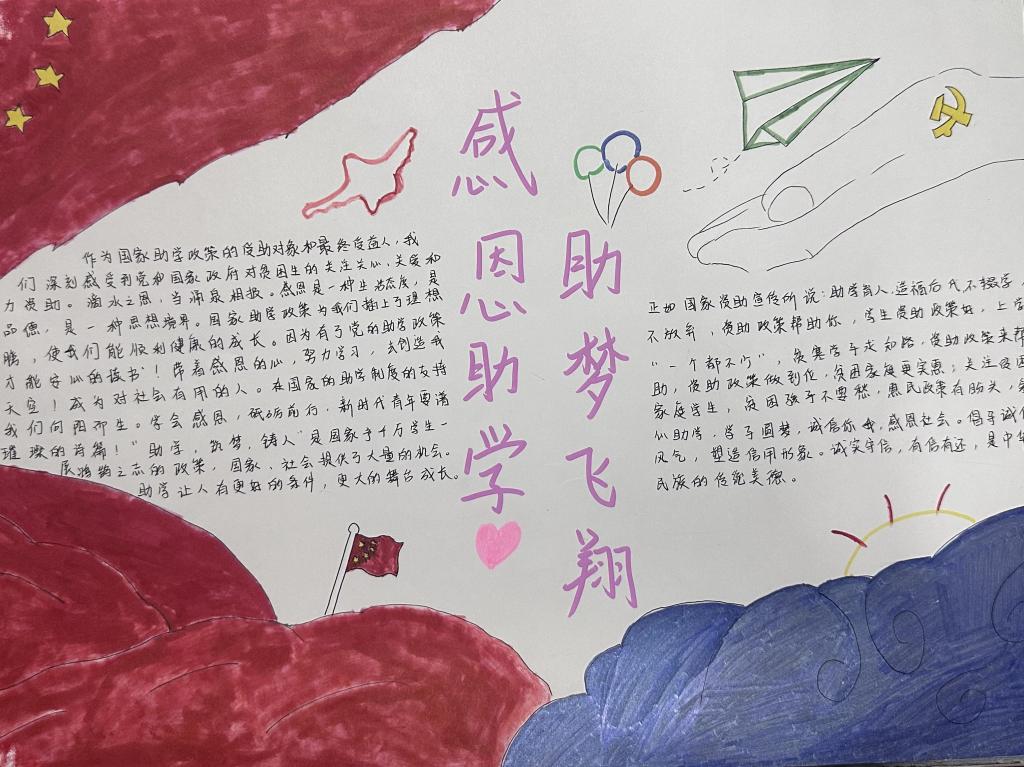 感恩助学
助梦飞翔
作为国家助学政策的受助对象和最终受益人，我
们深刻感受到党和国家政府对贫困生的关注关心、关爱和
力资助。滴水之恩，当涌泉相报。感恩是一种生活态度，是
品德，是一种思想境界。国家助学政策为我们插上了理想
腾，使我们能顺利健康的成长。因为有了党的助学政策
才能安心的读书！带着感恩的心，努力学习，去创造我
天空！成为对社会有用的人。在国家的助学制度的支持
我们向阳而生。学会感恩，砥砺前行，新时代青年要谱
璀璨的诗篇！"助学，筑梦，铸人"是国家予千万学生一
展鸿鹄之志的政策，国家、社会提供了大量的机会。
助学让人有更好的条件，更大的舞台成长。
正如国家资助宣传所说：助学育人，造福后代不辍学，
不放弃，资助政策帮助你，学生资助政策好，上学
"一个都不少"，贫寒学子求知路，资助政策来帮
助，资助政策做到位，贫困家庭更实惠；关注贫困
家庭学生，贫困孩子不要愁，惠民政策有盼头，
心助学，学子圆梦，诚信你我，感恩社会。倡导诚信
风气，塑造信用形象。诚实守信，有信有还，是中华
民族的传统美德。